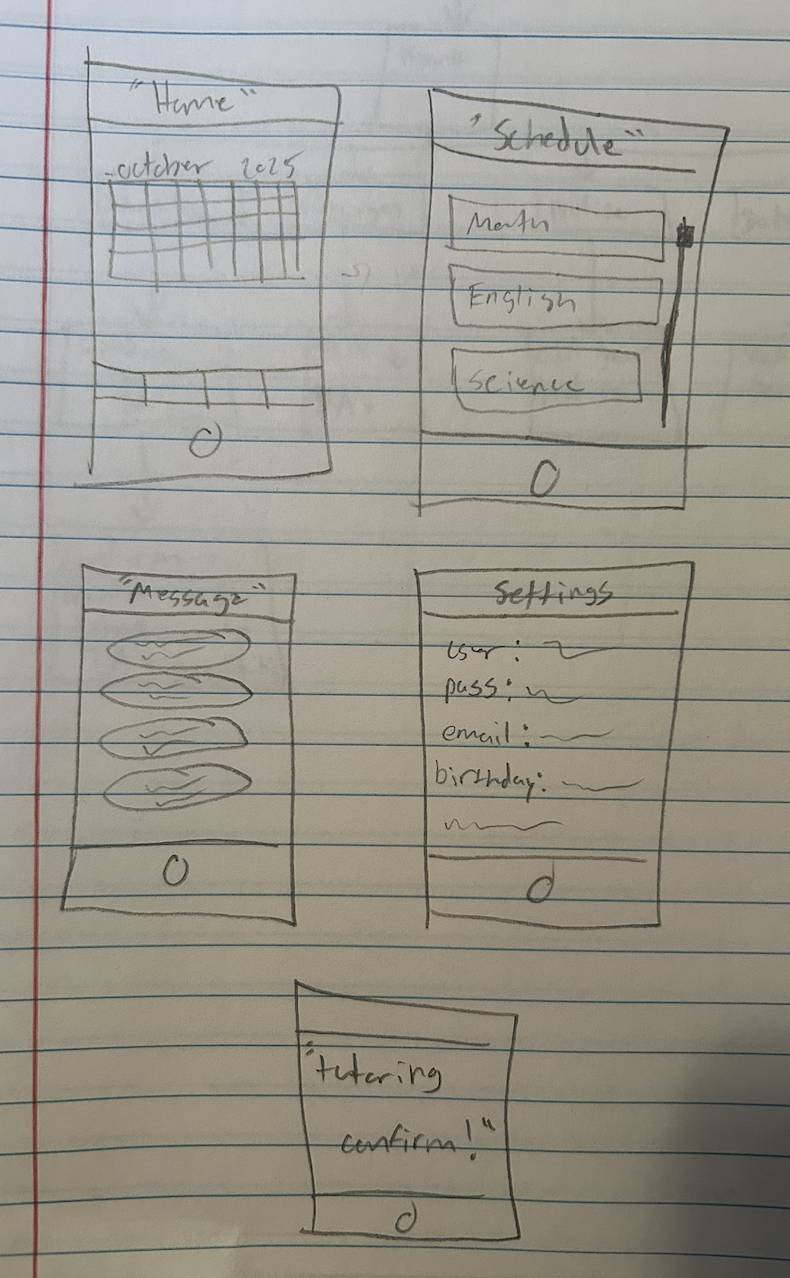 "Home"
october 2025
"Schedule"
Math
English
Science
"Message"
Settings
user:
pass:
email:
birthday:
"tutoring
confirm!"